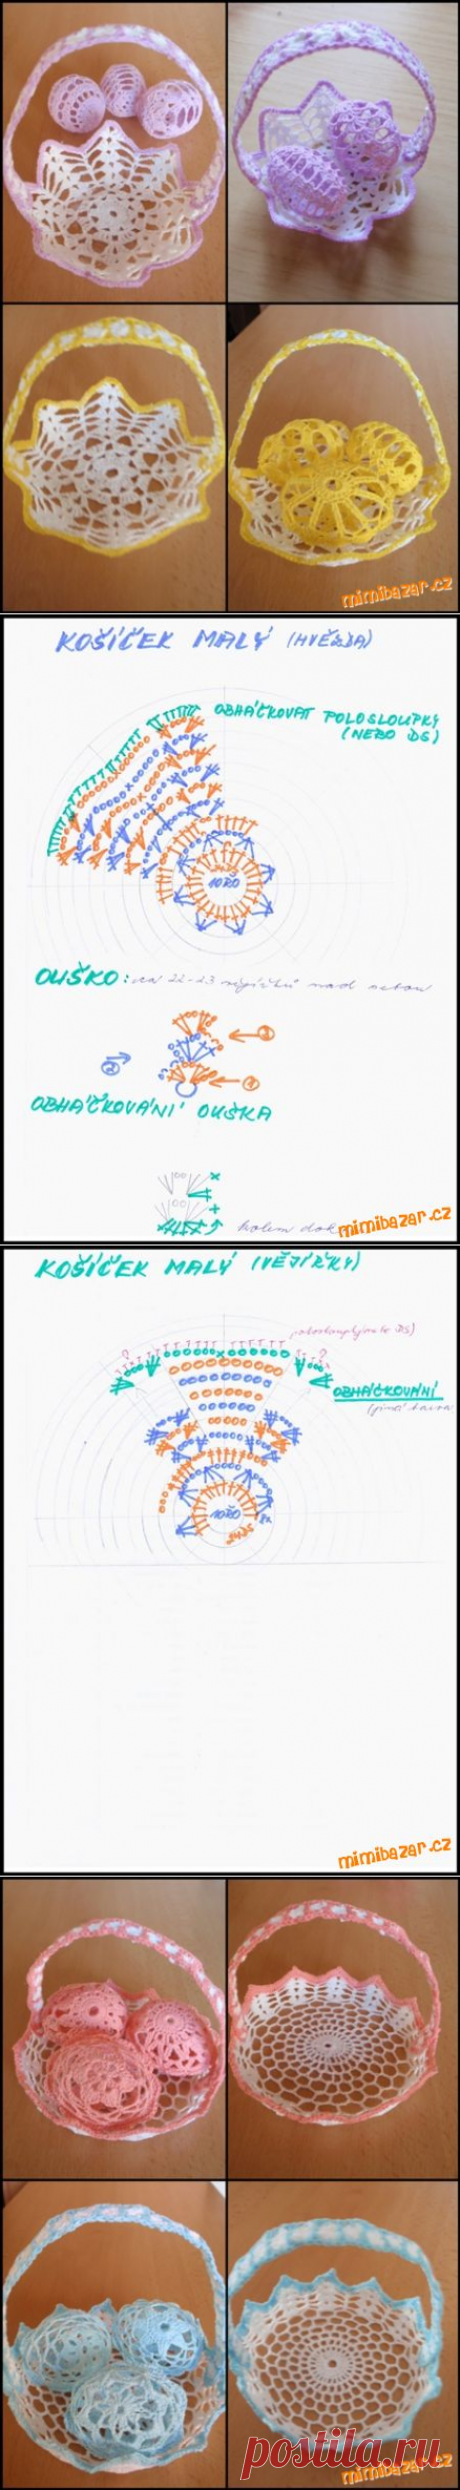 mimibazar.cz
KOŠÍČEK MALÝ (HVĚZDA)
OBHÁČKOVAT POLOSLOUPKY
(NEBO DS)
10ŘO
OUŠKO: na 22-23 nad sebou
1
2
1
OBHÁČKOVÁNÍ OUŠKA
kolem dok
mimibazar.cz
KOŠÍČEK MALÝ (VĚJÍŘKY)
polosloupky DS)
OBHÁČKOVÁNÍ
(jiná barva
10ŘO
mimibazar.cz
postila.ru
mimibazar.cz